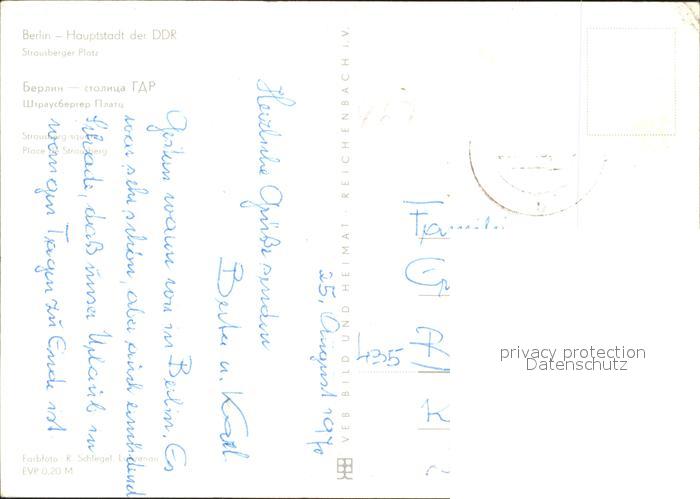 Berlin – Hauptstadt der DDR
Strausberger Platz
Берлин — столица ГДР
Штраусбергер Платц
Strausberg square
Place de Strausberg
25. August 1970
Herzliche Grüße senden
Berta u. Karl
Gestern waren wir in Berlin. Es
war sehr schön, aber auch
Schade, daß unser Urlaub in
wenigen Tagen zu Ende ist
VEB BILD UND HEIMAT · REICHENBACH i.V.
Familie
435
privacy protection
Datenschutz
Farbfoto: R. Schlegel,
EVP 0,20 M